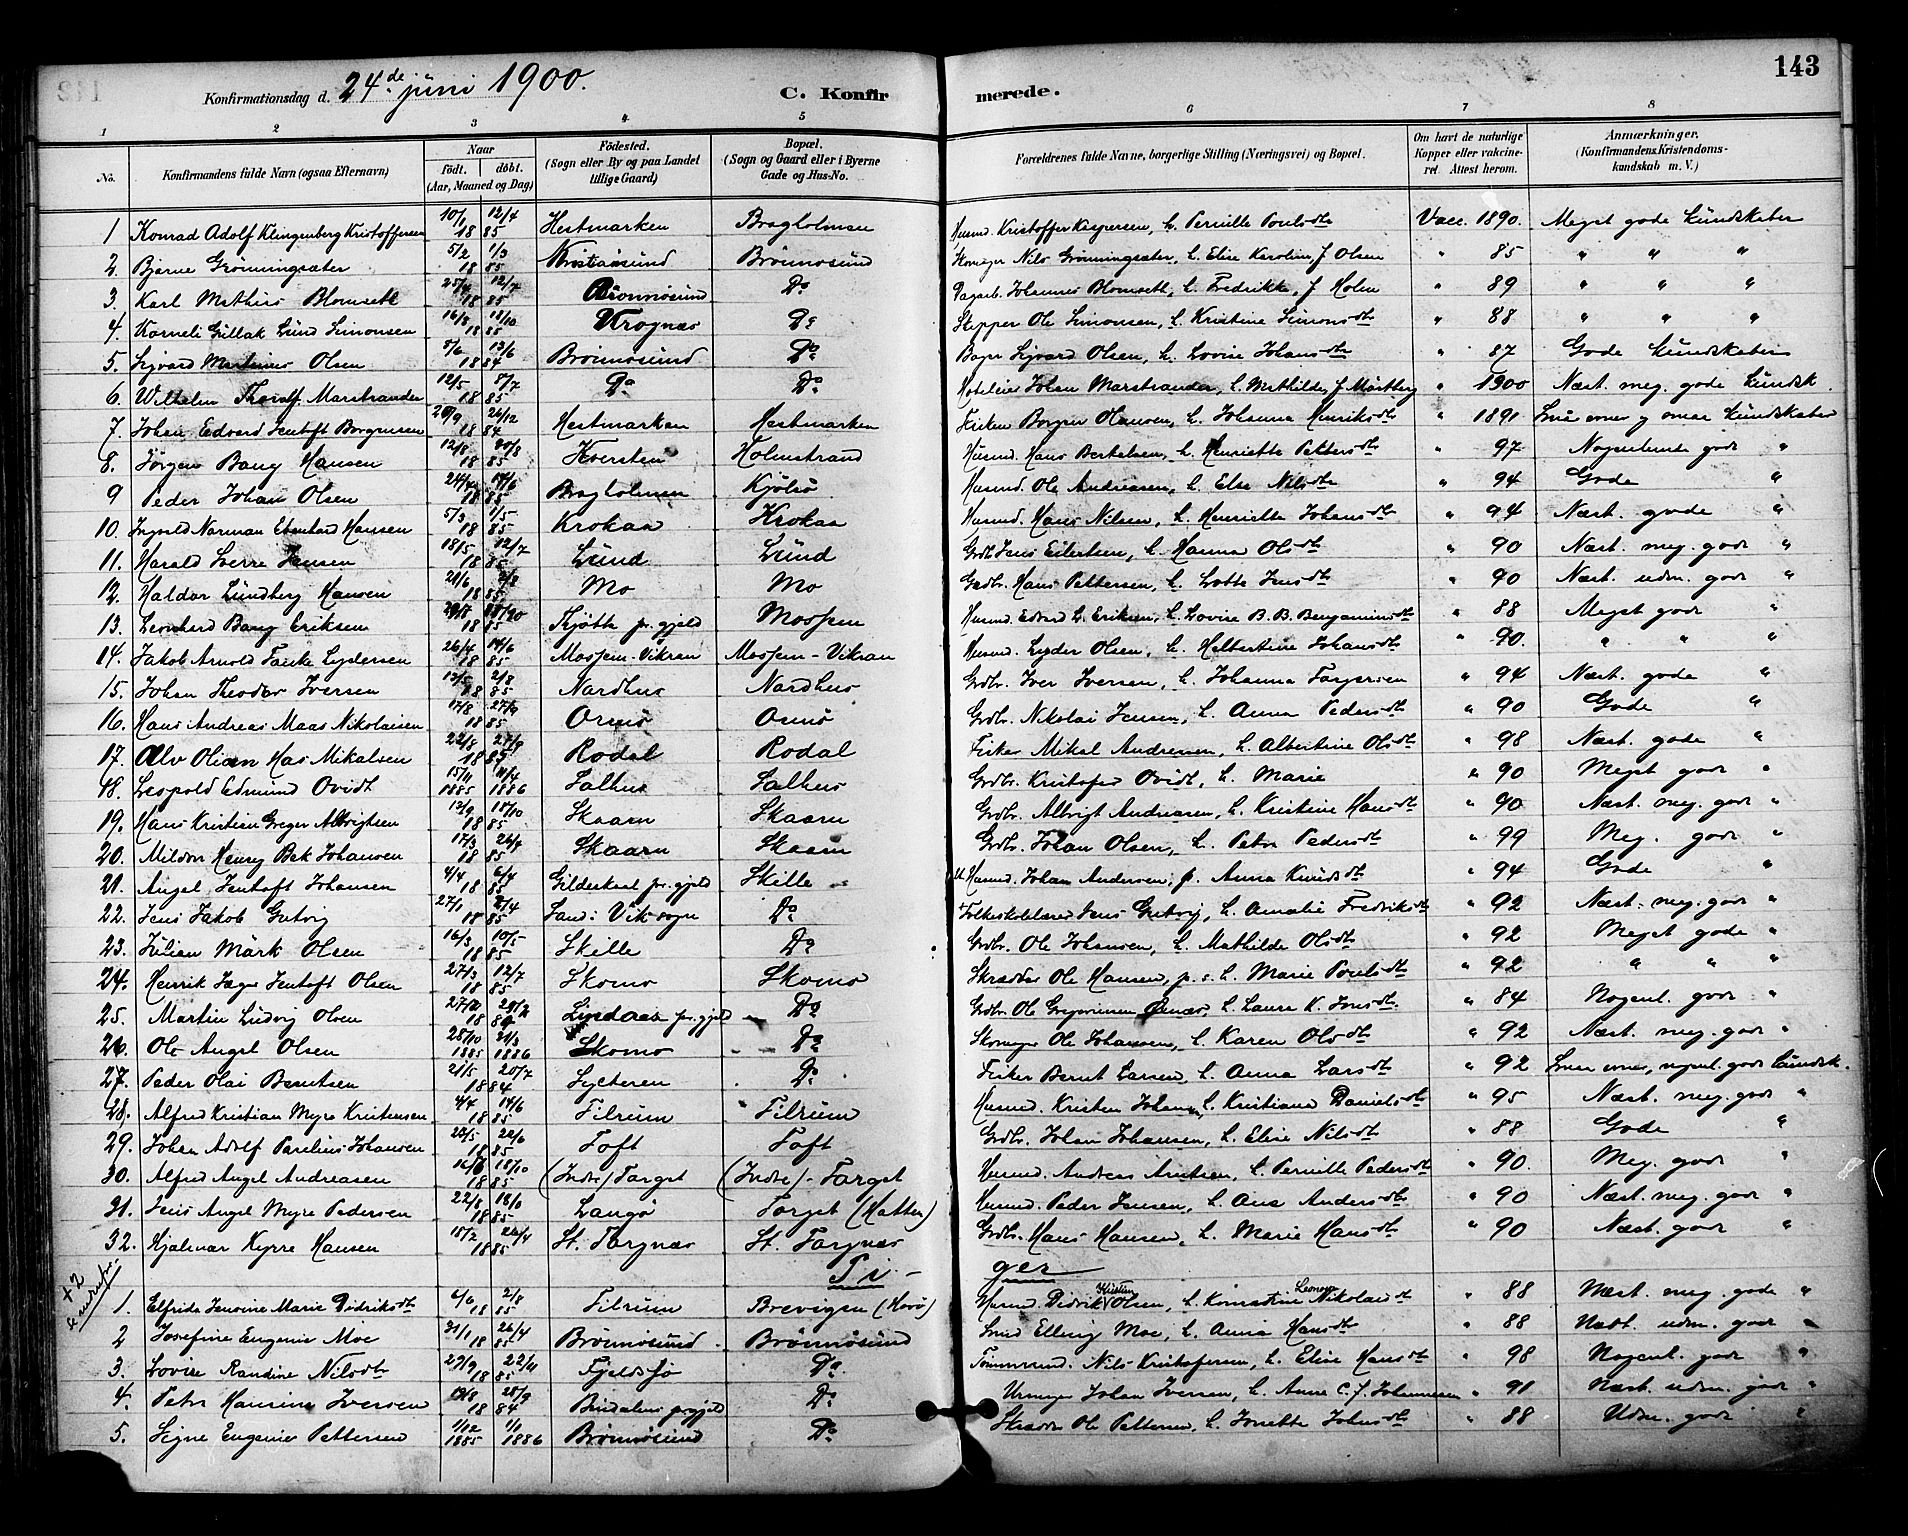 143
Konfirmationsdag d. 24de juni 1900. C. Konfir merede.
1 2 3 4 5 6 7 8
No. Konfirmandens fulde Navn (ogsaa Efternavn) Naar født. døbt. (Aar, Maaned og Dag) Fødested. (Sogn eller By og paa Landet tillige Gaard) Bopæl. (Sogn og Gaard eller i Byerne Gade og Hus-No. Forældrenes fulde Navne, borgerlige Stilling (Næringsvei) og Bopæl. Om havt de naturlige Kopper eller vakcineret. Attest herom. Anmærkninger. (Konfirmandens Kristendomskundskab m. V.)
1 Konrad Adolf Klingenberg Kristoffersen 10/1 1885 12/4 Hestmarken Bragholmen Husmd. Kristoffer Kaspersen, h. Pernille Poulsdtr Vacc. 1890. Meget gode Kundskaber
2. Bjarne Grønningsæter 5/2 1885 1/3 Kristiansund Brønnøsund Skomager Nils Grønningsæter, h. Elise Karoline f. Olsen " 85 " " "
3. Karl Mathias Blomseth 25/4 1885 12/7 Brønnøsund Do Dagarb. Johannes Blomseth, h. Fredrikke, f. Holm " 89 " " "
4. Korneli Gullak Lund Simonsen 16/8 1885 18/10 Krognæs Do Skipper Ole Simonsen, h. Kristine Simonsdtr " 88 " " "
5. Sigvard Martinus Olsen 8/6 1884 13/6 Brønnøsund Do Bager Sigvard Olsen, h. Lovise Johansdtr " 87 Gode Kundskaber
6. Wilhelm Thoralf Marstrander 12/5 1885 5/7 Do Do Hotelier Johan Marstrander, h. Mathilde, f. Mørtberg " 1900 Næst. meg. gode Kundsk.
7. Johan Edvard Jentoft Borgersen 1884 26/12 Hestmarken Hestmarken Fisker Borger Olausen, h. Johanna Henriksdtr " 1891 Smaa evner og smaa Kundskaber
8. Jørgen Bang Hansen 12/8 1885 30/8 Kversten Holmstrand Husmd. Hans Bertelsen, h. Henriette Pettersdtr " 97 Nogenlunde gode "
9 Peder Johan Olsen 24/4 1885 14/6 Bragholmen Kjølsø Husmd. Ole Andreasen, h. Else Nilsdtr " 94 Gode "
10. Ingvald Norman Ebenhard Hansen 5/3 1885 1/5 Krokaa Krokaa Husmd. Hans Nilsen, h. Henriette Johansdtr " 94 Næst. gode "
11. Harald Sverre Jensen 18/5 1885 12/7 Lund Lund Grdb. Jens Eilertsen, h. Hanna Olsdtr " 90 Næst. meg. gode "
12. Haldor Lundberg Hansen 21/6 1885 2/8 Mo Mo Gaardbr. Hans Pettersen, h. Lotte Jensdtr " 90 Næst. udm. gode "
13. Leonhard Bang Eriksen 1885 Kjøtta pr. gjeld Mossem Husmd. Edvard L. Eriksen, h. Lovise B. B. Benjaminsdtr " 88 Meget gode "
14. Jakob Arnold Tanke Lydersen 26/4 1885 14/6 Mossem-Vikran Mossem-Vikran Husmd. Lyder Olsen, h. Helbertine Johansdtr " 90. " " "
15. Johan Theodor Iversen 13/5 1885 2/8 Nordhus Nordhus Grdbr. Iver Iversen, h. Johanna Torgersen " 94 Næst. gode "
16. Hans Andreas Maas Nikolaisen 17/8 1885 27/9 Ormø Ormø Grdbr. Nikolai Jensen, h. Anna Pedersdtr " 90 Gode "
17. Alv Olian Has Mikalsen 22/8 1885 27/9 Rodal Rodal Fisker Mikal Andresen, h. Albertine Olsdtr " 98 Næst. gode "
18. Leopold Edmund Ovidt 15/11 1885 11/4 1886 Salhus Salhus Grdbr. Kristofer Ovidt, h. Marie " 90 Meget gode "
19. Hans Kristian Greger Albrigtsen 13/9 1885 18/10 Skaarn Skaarn Grdbr. Albrigt Andreasen, h. Kristine Hansdtr " 90 Næst. meg. gode "
20. Mildor Henry Bek Johansen 17/3 1885 26/4 Skaarn Skaarn Grdbr. Johan Olsen, h. Petra Pedersdtr " 99 Meg. gode "
21. Angel Jentoft Johansen 4/4 1885 6/4 Gildeskaal pr. gjeld Skille Husmd. Johan Andersen, p. Anna Knudsdtr " 94 Gode "
22. Jens Jakob Gutvig 27/1 1885 5/4 Sand i Vik-sogn Do Folkeskolelærer Jens Gutvig, h. Amalie Fredriksdtr " 92 Næst. meg. gode "
23. Julian Mørk Olsen 16/3 1885 10/5 Skille Do Grdbr. Ole Johansen, h. Mathilde Olsdtr " 92 Meget gode "
24. Henrik Jæger Jentoft Olsen 27/3 1885 12/7 Skomo Skomo Skrædder Ole Hansen, p. s. h. Marie Poulsdtr " 92 " " "
25. Martin Ludvig Olsen 1884 Lindaas pr. gjeld Do Grdbr. Ole Gregoriusen Ømnæs, h. Laura K. Jensdtr " 84 Nogenl. gode "
26. Ole Angel Olsen 28/10 1885 21/3 1886 Skomo Do Skomager Ole Johansen, h. Karen Olsdtr " 92 Næst. meg. gode "
27. Peder Olai Berntsen 21/5 1884 20/7 Sylteren Do Fisker Bernt Larsen, h. Anna Larsdtr " 92 Smaa evner, nogenl. gode Kundsk.
28. Alfred Kristian Myre Kristensen 4/4 1885 14/6 Tilrum Tilrum Husmd. Kristen Johansen, h. Kristiana Danielsdtr " 95 Næst. meg. gode "
29. Johan Adolf Parelius Johansen 1885 Toft Toft Grdbr. Johan Johansen, h. Elise Nilsdtr " 88 Gode "
30. Alfred Angel Andreasen 1885 18/10 (Indre) Torget (Indre)-Torget Husmd. Andreas Arntsen, h. Pernille Pedersdtr " 90. Meg. gode "
31. Jens Angel Myre Pedersen 22/8 1885 Langø Torget (Hatten) Husmd. Peder Jensen, h. Ane Andersdtr " 90 Næst. meg. gode "
32. Hjalmar Kyrre Hansen 15/2 1885 26/4 St. Torgnæs St. Torgnæs Grdbr. Hans Hansen, h. Marie Hansdtr " 90 Næst. gode "
+ 2
Pi- ger
1. Elfrida Jensine Marie Didriksdtr 6/6 1885 2/8 Tilrum Brevigen (Havø) Husmd. Didrik Kristian Olsen, h. Leonora Nikolaisdtr " 88 Næst. meg. gode "
2 Josefine Eugenie Moe 31/1 1885 26/4 Brønnøsund Brønnøsund Smed Elling Moe, h. Anna Hansdtr " 88 Næst. udm. gode "
3. Lovise Randine Nilsdtr 27/9 1885 22/11 Fjeldsjø Do Tømmermd. Nils Kristofersen, h. Elise Hansdtr " 98 Nogenl. gode "
4. Petra Hansine Iversen 1884 28/9 Bindalens prgjeld Do Urmager Johan Iversen, h. Anne C. f. Johannesen " 91 Næst. udm. gode "
5. Signe Eugenie Pettersen 1/12 1885 1/1 1886 Brønnøsund Do Skrædder Ole Pettersen, h. Jonette Johnsdtr " 88 Udm. gode "